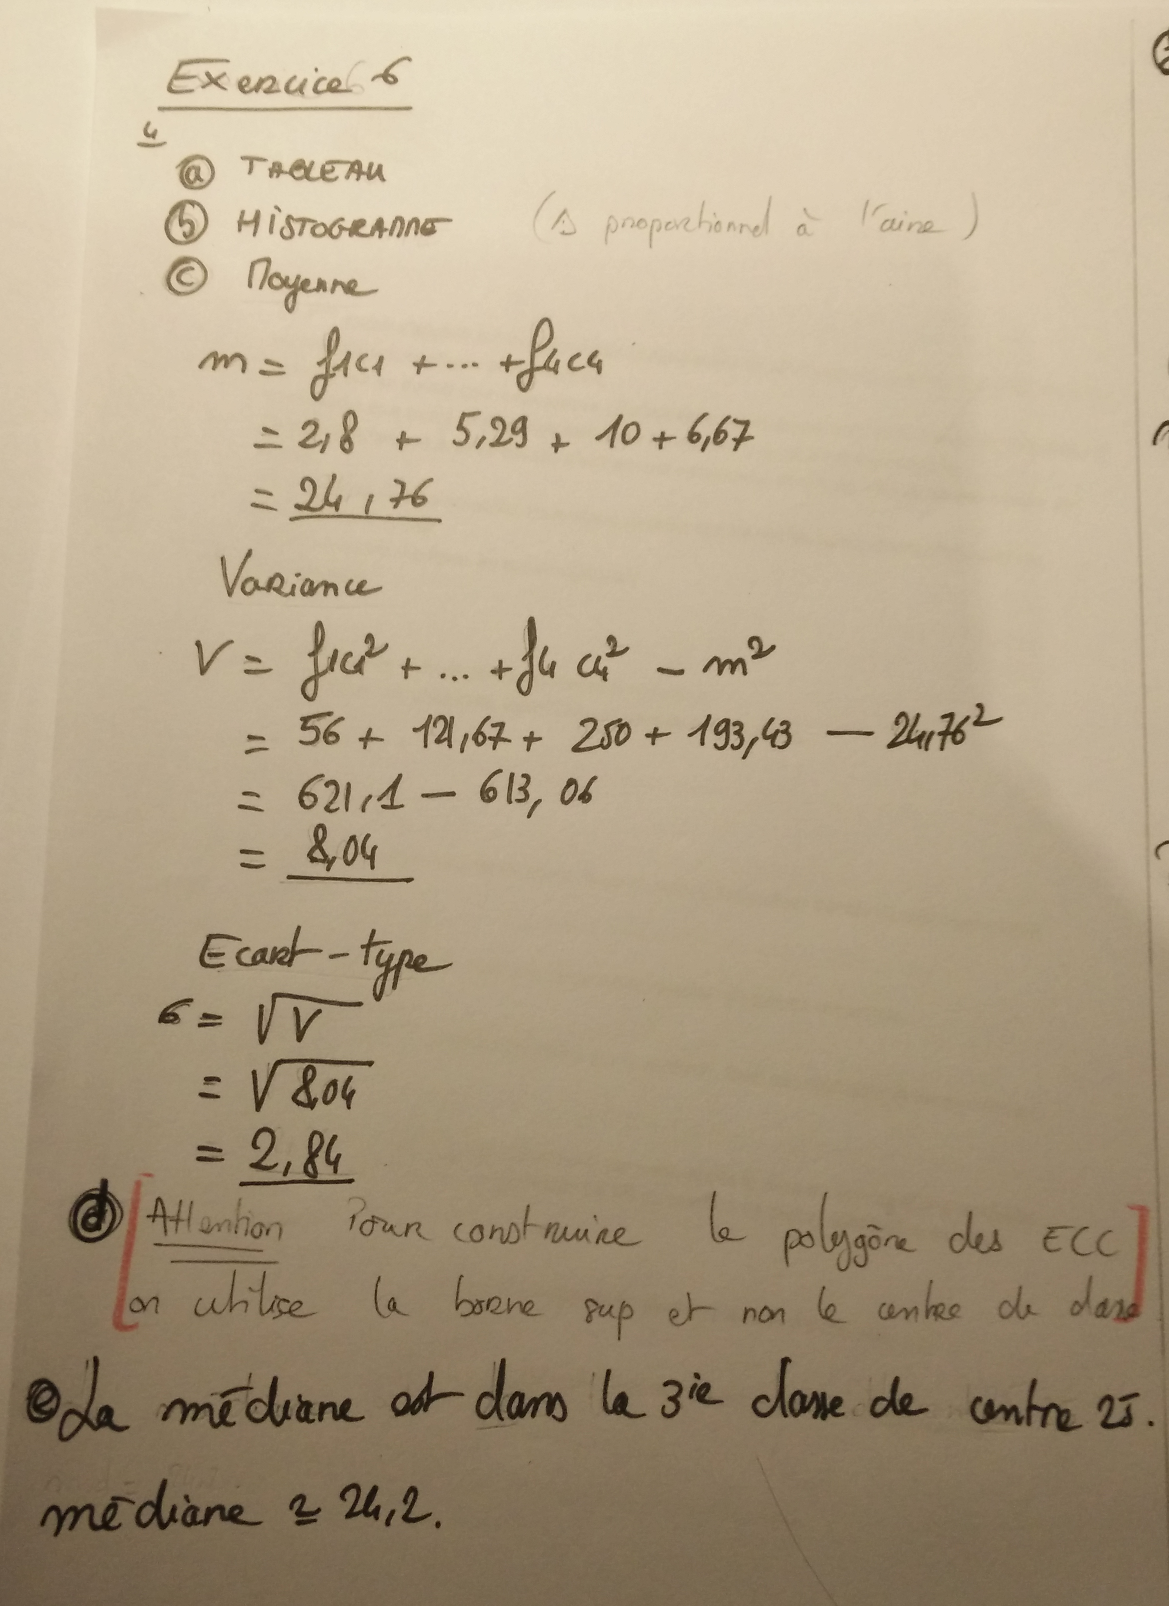 Exercice 6
4
ⓐ TABLEAU
ⓑ HiSTOGRAMME (⚠ proportionnel à l'aire)
ⓒ Moyenne
m = f1c1 + ... + f4c4
= 2,8 + 5,29 + 10 + 6,67
= 24,76
Variance
V = f1c1² + ... + f4 c4² - m²
= 56 + 121,67 + 250 + 193,43 — 24,76²
= 621,1 — 613,06
= 8,04
Ecart-type
σ = √V
= √8,04
= 2,84
ⓓ [Attention Pour construire le polygône des ECC
on utilise la borne sup et non le centre de classe]
ⓔ La médiane est dans la 3ie classe de centre 25.
médiane ≃ 24,2.